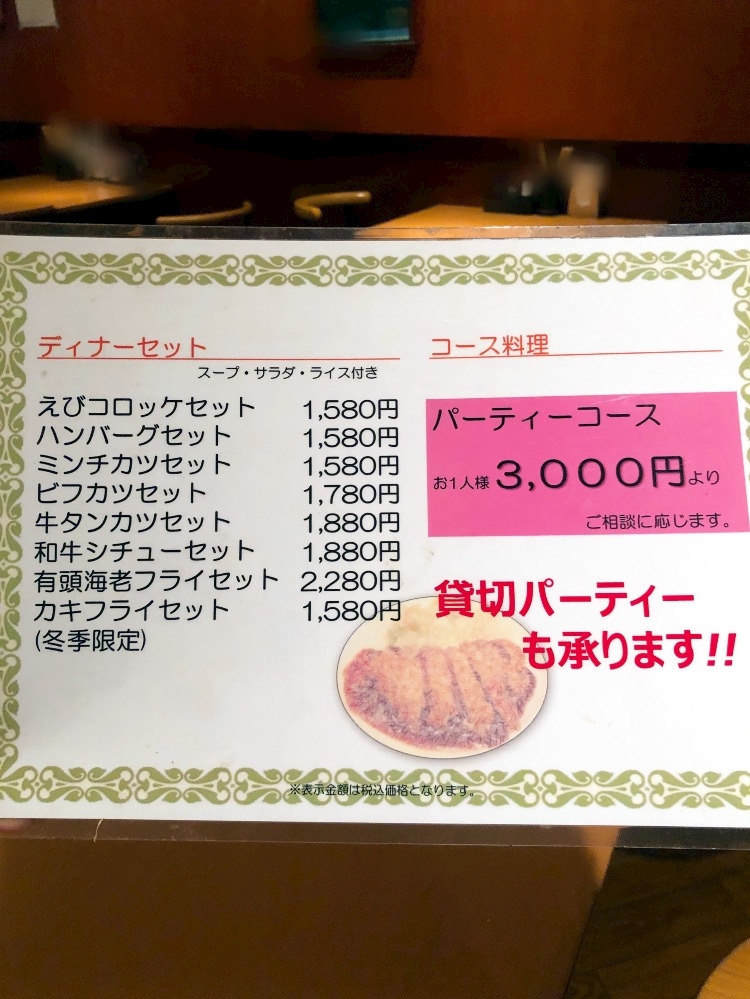 ディナーセット
スープ・サラダ・ライス付き
えびコロッケセット 1,580円
ハンバーグセット 1,580円
ミンチカツセット 1,580円
ビフカツセット 1,780円
牛タンカツセット 1,880円
和牛シチューセット 1,880円
有頭海老フライセット 2,280円
カキフライセット 1,580円
(冬季限定)
コース料理
パーティーコース
お1人様 3,000円より
ご相談に応じます。
貸切パーティー
も承ります!!
※表示金額は税込価格となります。